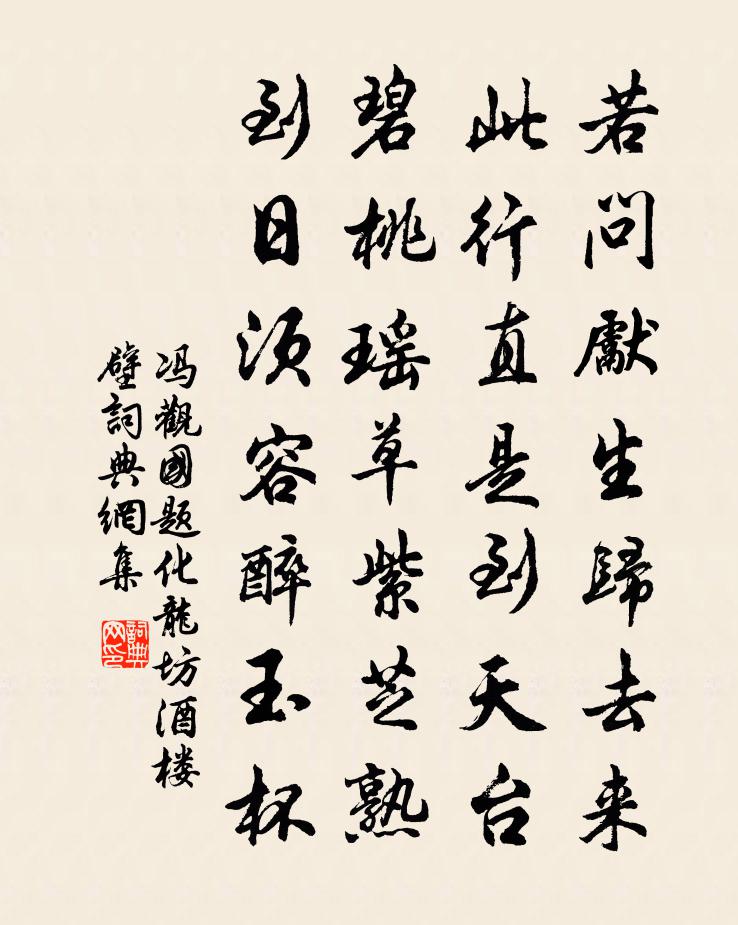 若問獻生歸去来
此行直是到天台
碧桃瑶草紫芝熟
到日須容醉玉杯
馮觀國题化龍坊酒楼
壁詞典網集
詞典
网印